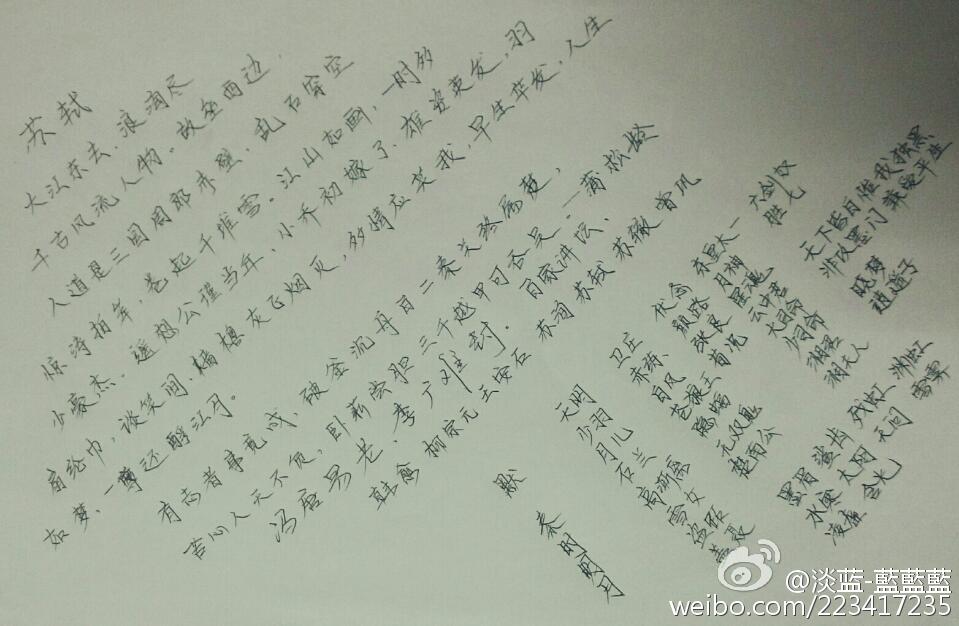 苏轼
大江东去，浪淘尽
千古风流人物。故垒西边
人道是三国周郎赤壁，乱石穿空
惊涛拍岸，卷起千堆雪。江山如画，一时多
少豪杰。遥想公瑾当年，小乔初嫁了，雄姿英发，羽
扇纶巾，谈笑间，樯橹灰飞烟灭，多情应笑我，早生华发，人生
如梦，一尊还酹江月。
有志者事竟成，破釜沉舟百二秦关终属楚，
苦心人天不负，卧薪尝胆三千越甲可吞吴。—蒲松龄
冯唐易老，李广难封。 百家讲坛、
韩愈 柳宗元 王安石 苏洵 苏轼 苏辙 曾巩
默
秦时明月
天明
少羽
月儿
石兰
高渐离
雪女
盗跖
盖聂
卫庄
赤练
白凤
苍狼王
隐蝠
无双鬼
楚南公
伏念
颜路
张良
荀况
东皇太一
月神
星魂
云中君
大司命
少司命
湘君
湘夫人
六剑奴
胜七
天下皆白唯我独黑
非攻墨门兼爱平生
晓梦
逍遥子
墨眉 鲨齿 残虹 渊虹
水寒 太阿 天问 雪霁
凌虚 含光
@淡蓝-藍藍藍
weibo.com/223417235